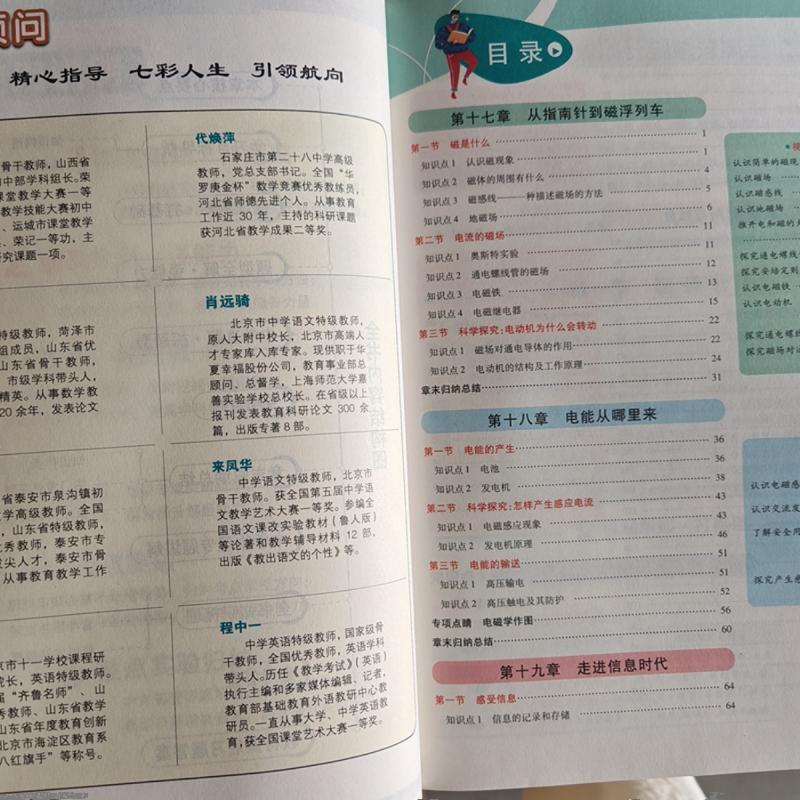 顾问
精心指导 七彩人生 引领航向
骨干教师，山西省
初中部学科组长。荣
课堂教学大赛一等
教学技能大赛初中
、运城市课堂教学
、荣记一等功，主
究课题一项。
代焕萍
石家庄市第二十八中学高级
教师，党总支部书记。全国“华
罗庚金杯”数学竞赛优秀教练员，
河北省师德先进个人。从事教育
工作近 30 年，主持的科研课题
获河北省教学成果二等奖。
特级教师，菏泽市
组成员，山东省优
山东省骨干教师，
市级学科带头人，
精英。从事数学教
20 余年，发表论文
肖远骑
北京市中学语文特级教师，
原人大附中校长，北京市高端人
才专家库入库专家。现供职于华
夏幸福股份公司，教育事业部总
顾问、总督学，上海师范大学嘉
善实验学校总校长。在省级以上
报刊发表教育科研论文 300 余
篇，出版专著 8 部。
省泰安市泉沟镇初
学高级教师。全国
，山东省特级教师，
优秀教师，泰安市专
拔尖人才，泰安市骨
从事教育教学工作
来凤华
中学语文特级教师，北京市
骨干教师。获全国第五届中学语
文教学艺术大赛一等奖。参编全
国语文课改实验教材（鲁人版）
等论著和教学辅导材料 12 部，
出版《教出语文的个性》等。
京市十一学校课程研
院长，英语特级教师。
届“齐鲁名师”、山
秀教师、山东省教学
山东省年度教育创新
北京市海淀区教育系
八红旗手”等称号。
程中一
中学英语特级教师，国家级骨
干教师，全国优秀教师，英语学科
带头人。历任《教学考试》（英语）
执行主编和多家媒体编辑、记者，
教育部基础教育外语教研中心教
研员。一直从事大学、中学英语教
育，获全国课堂艺术大赛一等奖。
目录
第十七章 从指南针到磁浮列车
第一节 磁是什么 1
知识点 1 认识磁现象 1
知识点 2 磁体的周围有什么 4
知识点 3 磁感线——一种描述磁场的方法 5
知识点 4 地磁场 6
第二节 电流的磁场 11
知识点 1 奥斯特实验 11
知识点 2 通电螺线管的磁场 12
知识点 3 电磁铁 13
知识点 4 电磁继电器 15
第三节 科学探究：电动机为什么会转动 22
知识点 1 磁场对通电导体的作用 22
知识点 2 电动机的结构及工作原理 24
章末归纳总结 31
第十八章 电能从哪里来
第一节 电能的产生 36
知识点 1 电池 36
知识点 2 发电机 38
第二节 科学探究：怎样产生感应电流 43
知识点 1 电磁感应现象 43
知识点 2 发电机原理 46
第三节 电能的输送 51
知识点 1 高压输电 51
知识点 2 高压触电及其防护 52
专项点睛 电磁学作图 56
章末归纳总结 60
第十九章 走进信息时代
第一节 感受信息 64
知识点 1 信息的记录和存储 64
认识简单的磁现
认识磁场
认识磁感线
认识地磁场
推开电和磁的大
探究通电螺线管
探究安培定则
认识电磁铁
认识电动机
探究通电
探究磁场对
认识电磁感
认识交流发
了解安全用
探究产生感